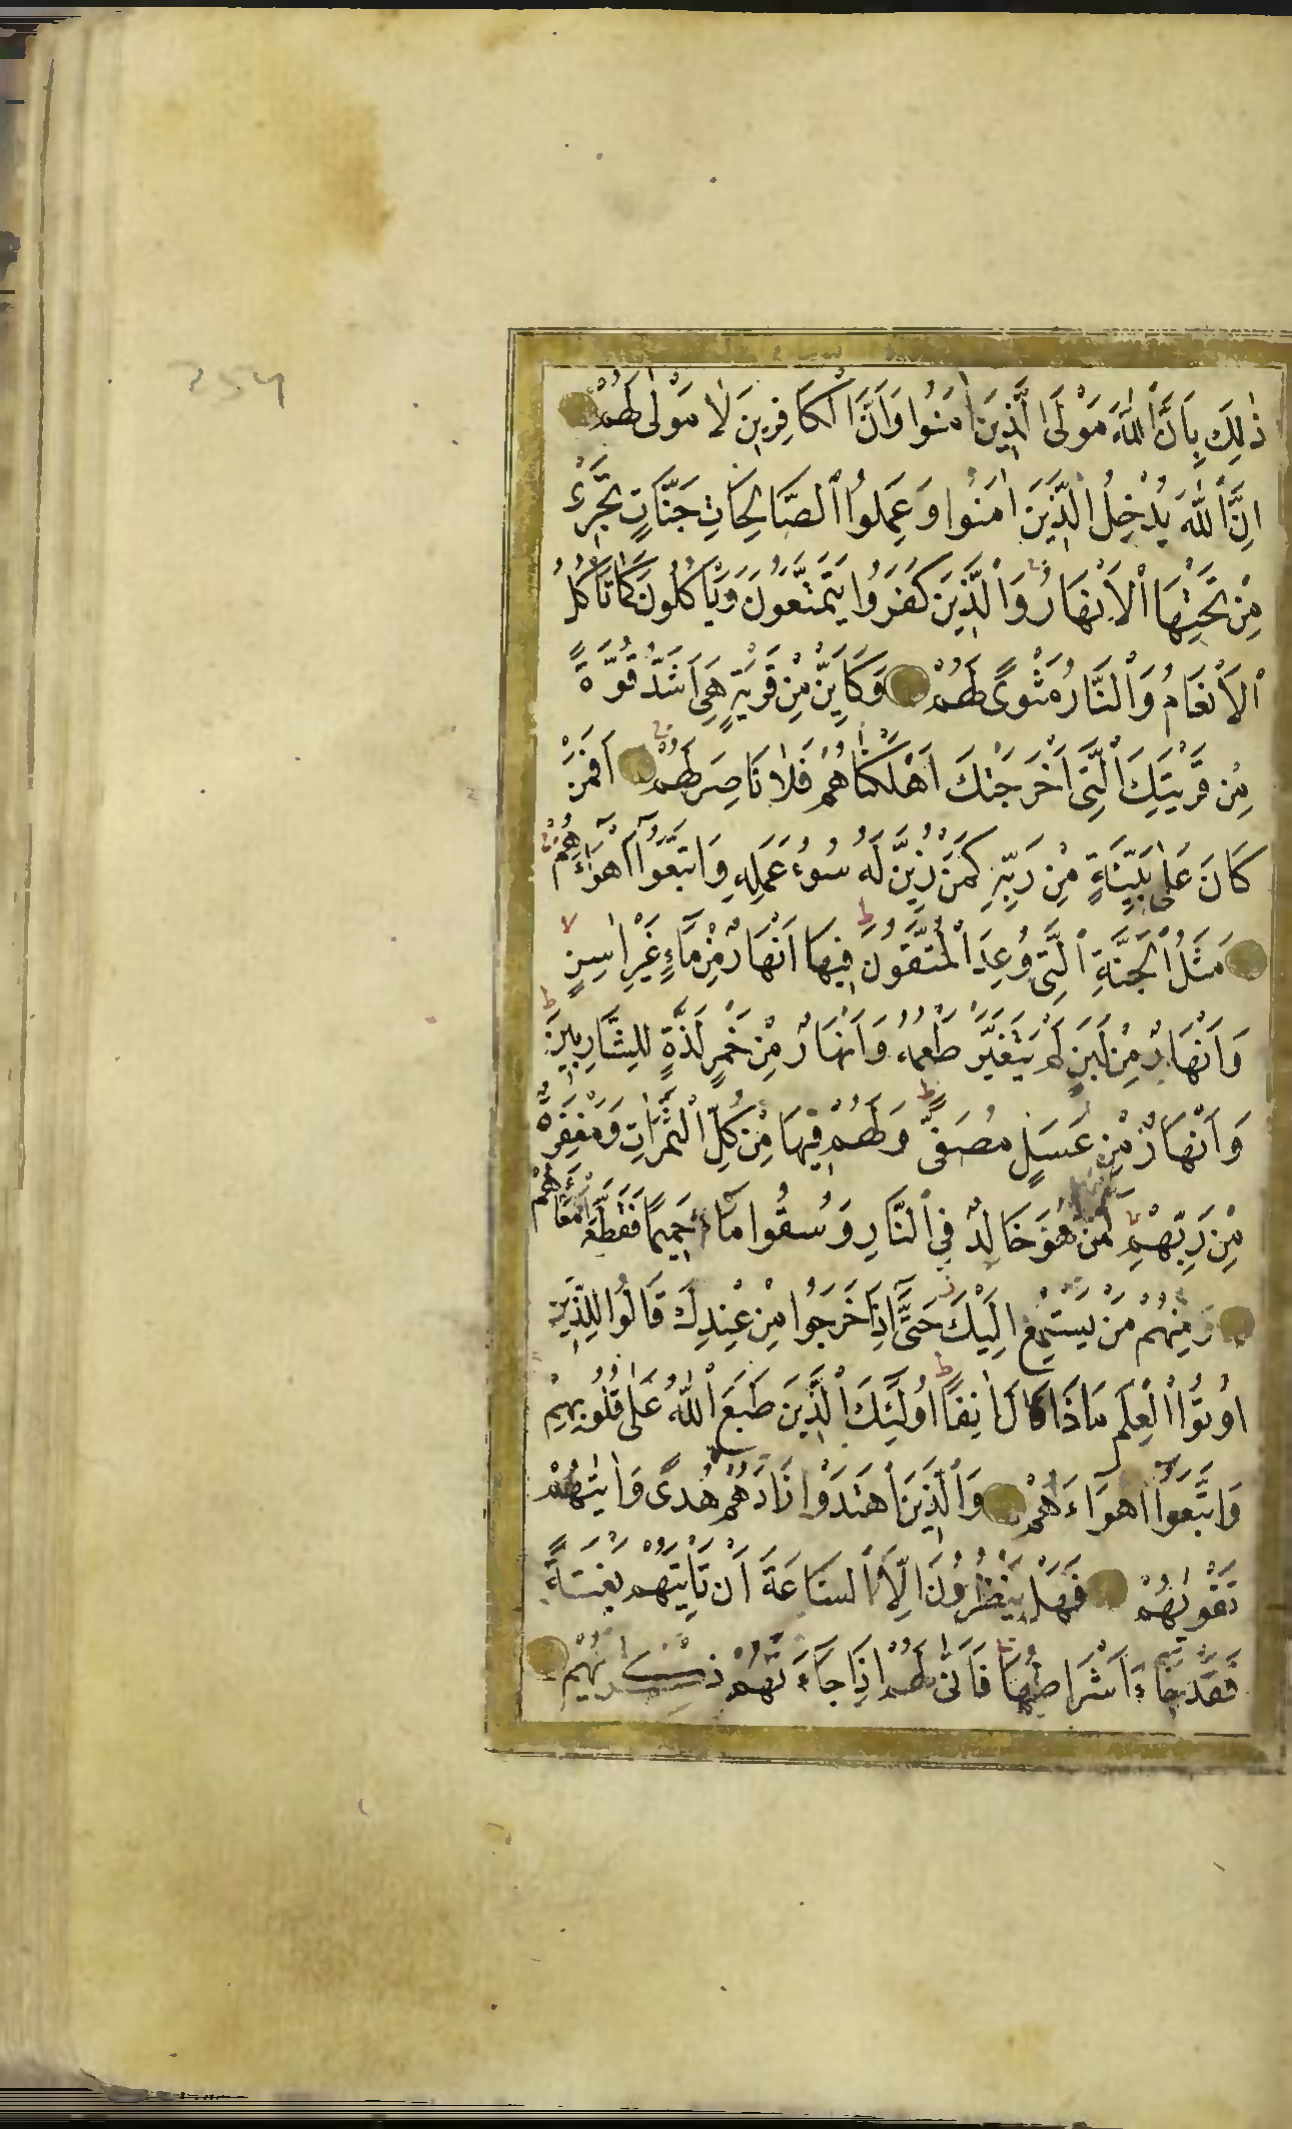 ذٰلِكَ بِاَنَّ اللّٰهَ مَوْلَى الَّذِينَ اٰمَنُوا وَاَنَّ الْكَافِرِينَ لَا مَوْلٰى لَهُمْ
اِنَّ اللّٰهَ يُدْخِلُ الَّذِينَ اٰمَنُوا وَعَمِلُوا الصَّالِحَاتِ جَنَّاتٍ تَجْرِي
مِنْ تَحْتِهَا الْاَنْهَارُ وَالَّذِينَ كَفَرُوا يَتَمَتَّعُونَ وَيَاْكُلُونَ كَمَا تَاْكُلُ
الْاَنْعَامُ وَالنَّارُ مَثْوًى لَهُمْ وَكَاَيِّنْ مِنْ قَرْيَةٍ هِيَ اَشَدُّ قُوَّةً
مِنْ قَرْيَتِكَ الَّتِي اَخْرَجَتْكَ اَهْلَكْنَاهُمْ فَلَا نَاصِرَ لَهُمْ اَفَمَنْ
كَانَ عَلٰى بَيِّنَةٍ مِنْ رَبِّهِ كَمَنْ زُيِّنَ لَهُ سُوءُ عَمَلِهِ وَاتَّبَعُوا اَهْوَاءَهُمْ
مَثَلُ الْجَنَّةِ الَّتِي وُعِدَ الْمُتَّقُونَ ط فِيهَا اَنْهَارٌ مِنْ مَاءٍ غَيْرِ اٰسِنٍ لا
وَاَنْهَارٌ مِنْ لَبَنٍ لَمْ يَتَغَيَّرْ طَعْمُهُ وَاَنْهَارٌ مِنْ خَمْرٍ لَذَّةٍ لِلشَّارِبِينَ ط
وَاَنْهَارٌ مِنْ عَسَلٍ مُصَفًّى ط وَلَهُمْ فِيهَا مِنْ كُلِّ الثَّمَرَاتِ وَمَغْفِرَةٌ
مِنْ رَبِّهِمْ كَمَنْ هُوَ خَالِدٌ فِي النَّارِ وَسُقُوا مَاءً حَمِيمًا فَقَطَّعَ اَمْعَاءَهُمْ
وَمِنْهُمْ مَنْ يَسْتَمِعُ اِلَيْكَ حَتَّى اِذَا خَرَجُوا مِنْ عِنْدِكَ قَالُوا لِلَّذِينَ
اُوتُوا الْعِلْمَ مَاذَا قَالَ اٰنِفًا ط اُولٰئِكَ الَّذِينَ طَبَعَ اللّٰهُ عَلٰى قُلُوبِهِمْ
وَاتَّبَعُوا اَهْوَاءَهُمْ وَالَّذِينَ اهْتَدَوْا زَادَهُمْ هُدًى وَاٰتٰيهُمْ
تَقْوٰيهُمْ فَهَلْ يَنْظُرُونَ اِلَّا السَّاعَةَ اَنْ تَاْتِيَهُمْ بَغْتَةً
فَقَدْ جَاءَ اَشْرَاطُهَا فَاَنّٰى لَهُمْ اِذَا جَاءَتْهُمْ ذِكْرٰيهُمْ